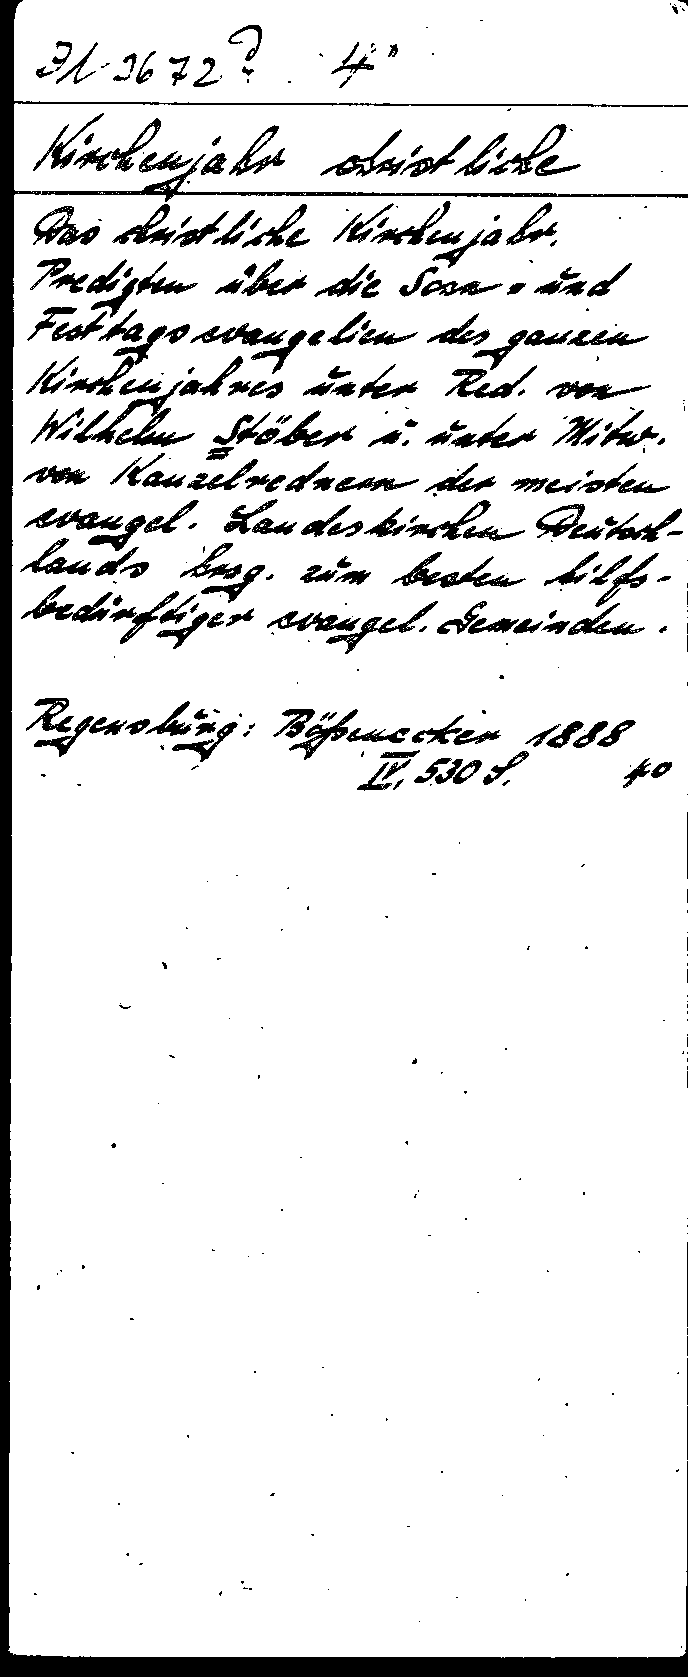 31 3672? 4°
Kirchenjahr christliche
Das christliche Kirchenjahr.
Predigten über die Sonn- und
Festtagsevangelien des ganzen
Kirchenjahres unter Red. von
Wilhelm Stöber u. unter Mitw.
von Kanzelrednern der meisten
evangel. Landeskirchen Deutsch-
lands hrsg. zum besten hilfs-
bedürftiger evangel. Gemeinden.
Regensburg: Bößenecker 1888
IV, 530 S. 4°